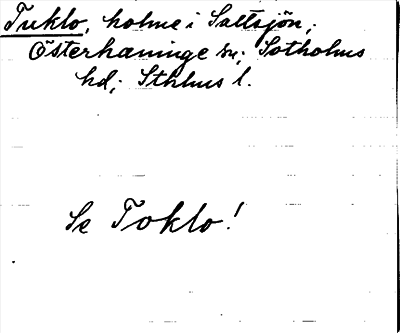 Tuklo, holme i Saltsjön;
Österhaninge sn; Sotholms
hd; Sthlms l.
Se Toklo!